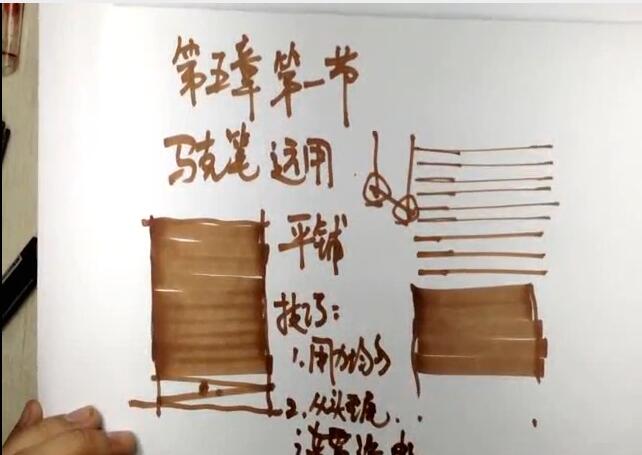 第五章第一节
马克笔运用
平铺
技巧:
1.用力均匀
2.从头至尾